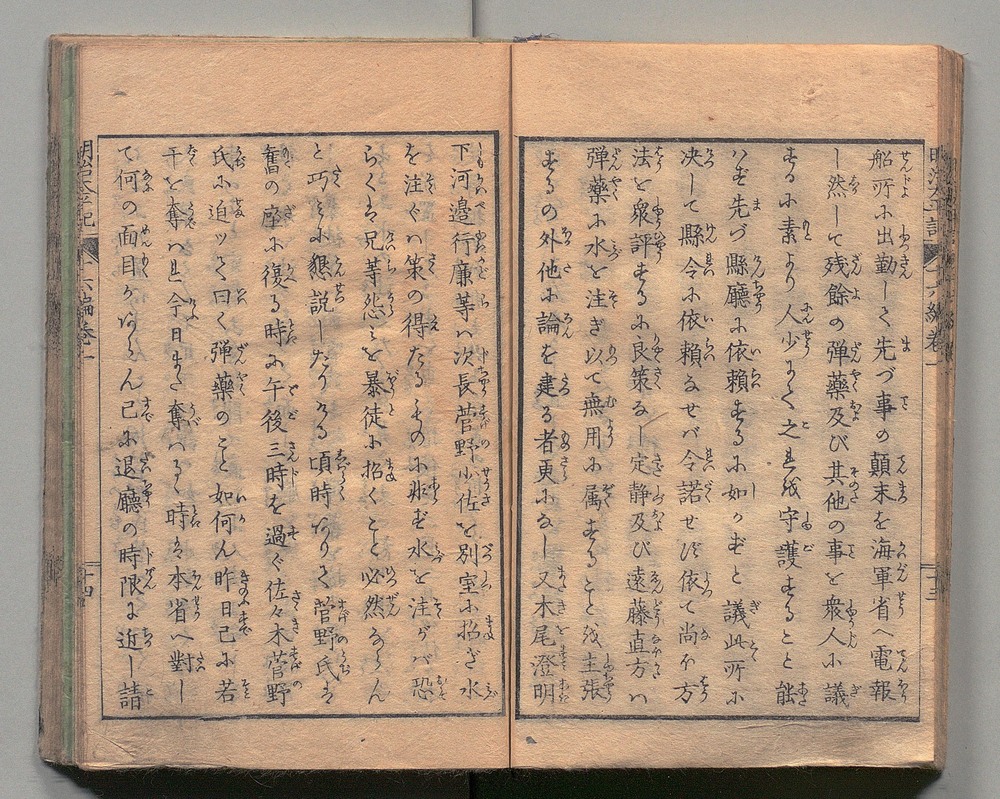 明治太平記 十六編巻一 十三
船所ニ出勤して先づ事の顛末を海軍省へ電報
し然して残餘の弾藥及び其他の事を衆人ふ議
するふ素より人少なくて之を守護すること能
はず先づ縣廳ふ依頼するふ如かずと議此所ふ
决して縣令ふ依頼なせバ令諾せず依て尚ほ方
法を衆評するふ良策なし定静及び遠藤直方ハ
弾藥ふ水を注ぎ以て無用ふ属することを主張
するの外他ふ論を建る者更ふなし又木尾澄明
下河邉行廉等ハ次長菅野少佐を別室ふ招ぎ水
を注ぐハ策の得たるものふ非ず水を注がバ恐
らくは兄等怨みを暴徒ふ招くこと必然ならん
と巧みふ懇説したりける頃時ありて菅野氏は
舊の座ふ復る時ふ午後三時を過ぐ佐々木菅野
氏ふ迫ッて曰く弾藥のこと如何ん昨日己ふ若
干を奪ハれ今日また奪ハるゝ時は本省へ對し
て何の面目かあらん己ふ退廳の時限に近し請
明治太平記 十六編巻一 十四